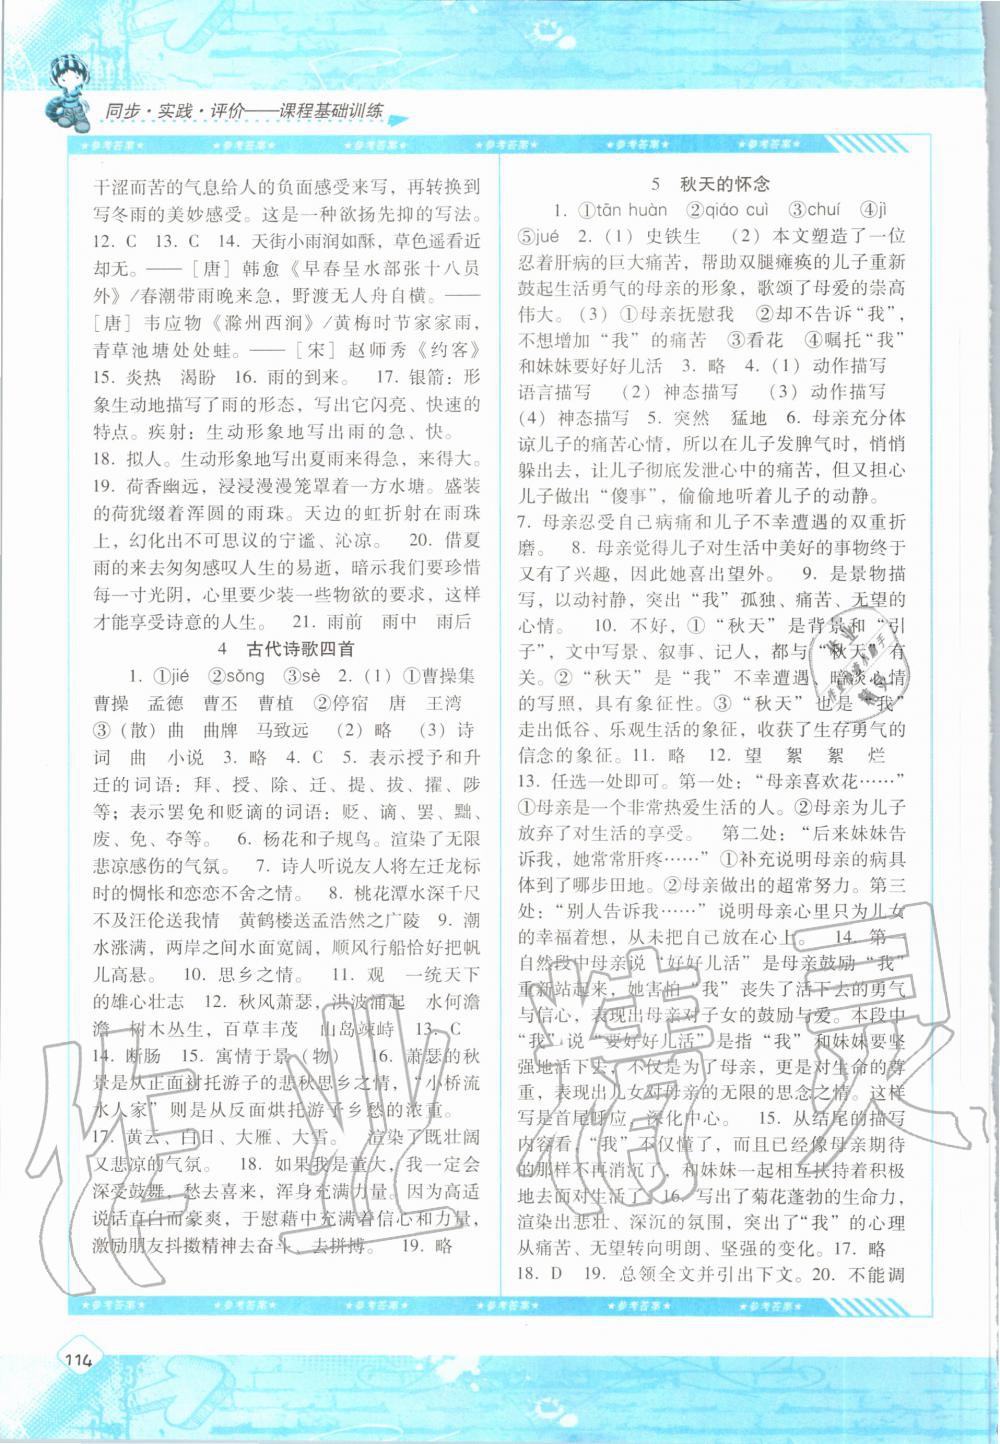 同步·实践·评价——课程基础训练
★参考答案★ ★参考答案★ ★参考答案★ ★参考答案★ ★参考答案★ ★参考答案★
干涩而苦的气息给人的负面感受来写，再转换到
写冬雨的美妙感受。这是一种欲扬先抑的写法。
12. C 13. C 14. 天街小雨润如酥，草色遥看近
却无。——［唐］韩愈《早春呈水部张十八员
外》/春潮带雨晚来急，野渡无人舟自横。——
［唐］韦应物《滁州西涧》/黄梅时节家家雨，
青草池塘处处蛙。——［宋］赵师秀《约客》
15. 炎热 渴盼 16. 雨的到来。 17. 银箭：形
象生动地描写了雨的形态，写出它闪亮、快速的
特点。疾射：生动形象地写出雨的急、快。
18. 拟人。生动形象地写出夏雨来得急，来得大。
19. 荷香幽远，浸浸漫漫笼罩着一方水塘。盛装
的荷犹缀着浑圆的雨珠。天边的虹折射在雨珠
上，幻化出不可思议的宁谧、沁凉。 20. 借夏
雨的来去匆匆感叹人生的易逝，暗示我们要珍惜
每一寸光阴，心里要少装一些物欲的要求，这样
才能享受诗意的人生。 21. 雨前 雨中 雨后
4 古代诗歌四首
1. ①jié ②sǒng ③sè 2.（1）①曹操集
曹操 孟德 曹丕 曹植 ②停宿 唐 王湾
③（散）曲 曲牌 马致远 （2）略 （3）诗
词 曲 小说 3. 略 4. C 5. 表示授予和升
迁的词语：拜、授、除、迁、提、拔、擢、陟
等；表示罢免和贬谪的词语：贬、谪、罢、黜、
废、免、夺等。 6. 杨花和子规鸟。渲染了无限
悲凉感伤的气氛。 7. 诗人听说友人将左迁龙标
时的惆怅和恋恋不舍之情。 8. 桃花潭水深千尺
不及汪伦送我情 黄鹤楼送孟浩然之广陵 9. 潮
水涨满，两岸之间水面宽阔，顺风行船恰好把帆
儿高悬。 10. 思乡之情。 11. 观 一统天下
的雄心壮志 12. 秋风萧瑟，洪波涌起 水何澹
澹 树木丛生，百草丰茂 山岛竦峙 13. C
14. 断肠 15. 寓情于景（物） 16. 萧瑟的秋
景是从正面衬托游子的悲秋思乡之情，“小桥流
水人家”则是从反面烘托游子乡愁的浓重。
17. 黄云、白日、大雁、大雪。 渲染了既壮阔
又悲凉的气氛。 18. 如果我是董大，我一定会
深受鼓舞，愁去喜来，浑身充满力量。因为高适
说话直白而豪爽，于慰藉中充满着信心和力量，
激励朋友抖擞精神去奋斗、去拼搏。 19. 略
5 秋天的怀念
1. ①tān huàn ②qiáo cuì ③chuí ④jì
⑤jué 2.（1）史铁生 （2）本文塑造了一位
忍着肝病的巨大痛苦，帮助双腿瘫痪的儿子重新
鼓起生活勇气的母亲的形象，歌颂了母爱的崇高
伟大。（3）①母亲抚慰我 ②却不告诉“我”，
不想增加“我”的痛苦 ③看花 ④嘱托“我”
和妹妹要好好儿活 3. 略 4.（1）动作描写
语言描写 （2）神态描写 （3）动作描写
（4）神态描写 5. 突然 猛地 6. 母亲充分体
谅儿子的痛苦心情，所以在儿子发脾气时，悄悄
躲出去，让儿子彻底发泄心中的痛苦，但又担心
儿子做出“傻事”，偷偷地听着儿子的动静。
7. 母亲忍受自己病痛和儿子不幸遭遇的双重折
磨。 8. 母亲觉得儿子对生活中美好的事物终于
又有了兴趣，因此她喜出望外。 9. 是景物描
写，以动衬静，突出“我”孤独、痛苦、无望的
心情。 10. 不好，①“秋天”是背景和“引
子”，文中写景、叙事、记人，都与“秋天”有
关。②“秋天”是“我”不幸遭遇、暗淡心情
的写照，具有象征性。③“秋天”也是“我”
走出低谷、乐观生活的象征，收获了生存勇气的
信念的象征。11. 略 12. 望 絮 絮 烂
13. 任选一处即可。第一处：“母亲喜欢花……”
①母亲是一个非常热爱生活的人。②母亲为儿子
放弃了对生活的享受。 第二处：“后来妹妹告
诉我，她常常肝疼……”①补充说明母亲的病具
体到了哪步田地。②母亲的超常努力。第三
处：“别人告诉我……”说明母亲心里只为儿女
的幸福着想，从未把自己放在心上。 14. 第一
自然段中母亲说“好好儿活”是母亲鼓励“我”
重新站起来，她害怕“我”丧失了活下去的勇气
与信心，突出了母亲对子女的鼓励与爱。本段中
“我”说“要好好儿活”是“我”和妹妹要坚
强地活下去，不辜负母亲，更是对生命的尊
重，表达出儿女对母亲的无限的思念之情。这样
写是首尾呼应，深化中心。 15. 从结尾的描写
内容看，“我”不仅懂了，而且已经像母亲期待
的那样不再消沉了，和妹妹一起相互扶持着积极
地去面对生活了。16. 写出了菊花蓬勃的生命力，
渲染出悲壮、深沉的氛围，突出了“我”的心理
从痛苦、无望转向明朗、坚强的变化。17. 略
18. D 19. 总领全文并引出下文。20. 不能调
★参考答案★ ★参考答案★ ★参考答案★ ★参考答案★ ★参考答案★ ★参考答案★
114
作业精灵